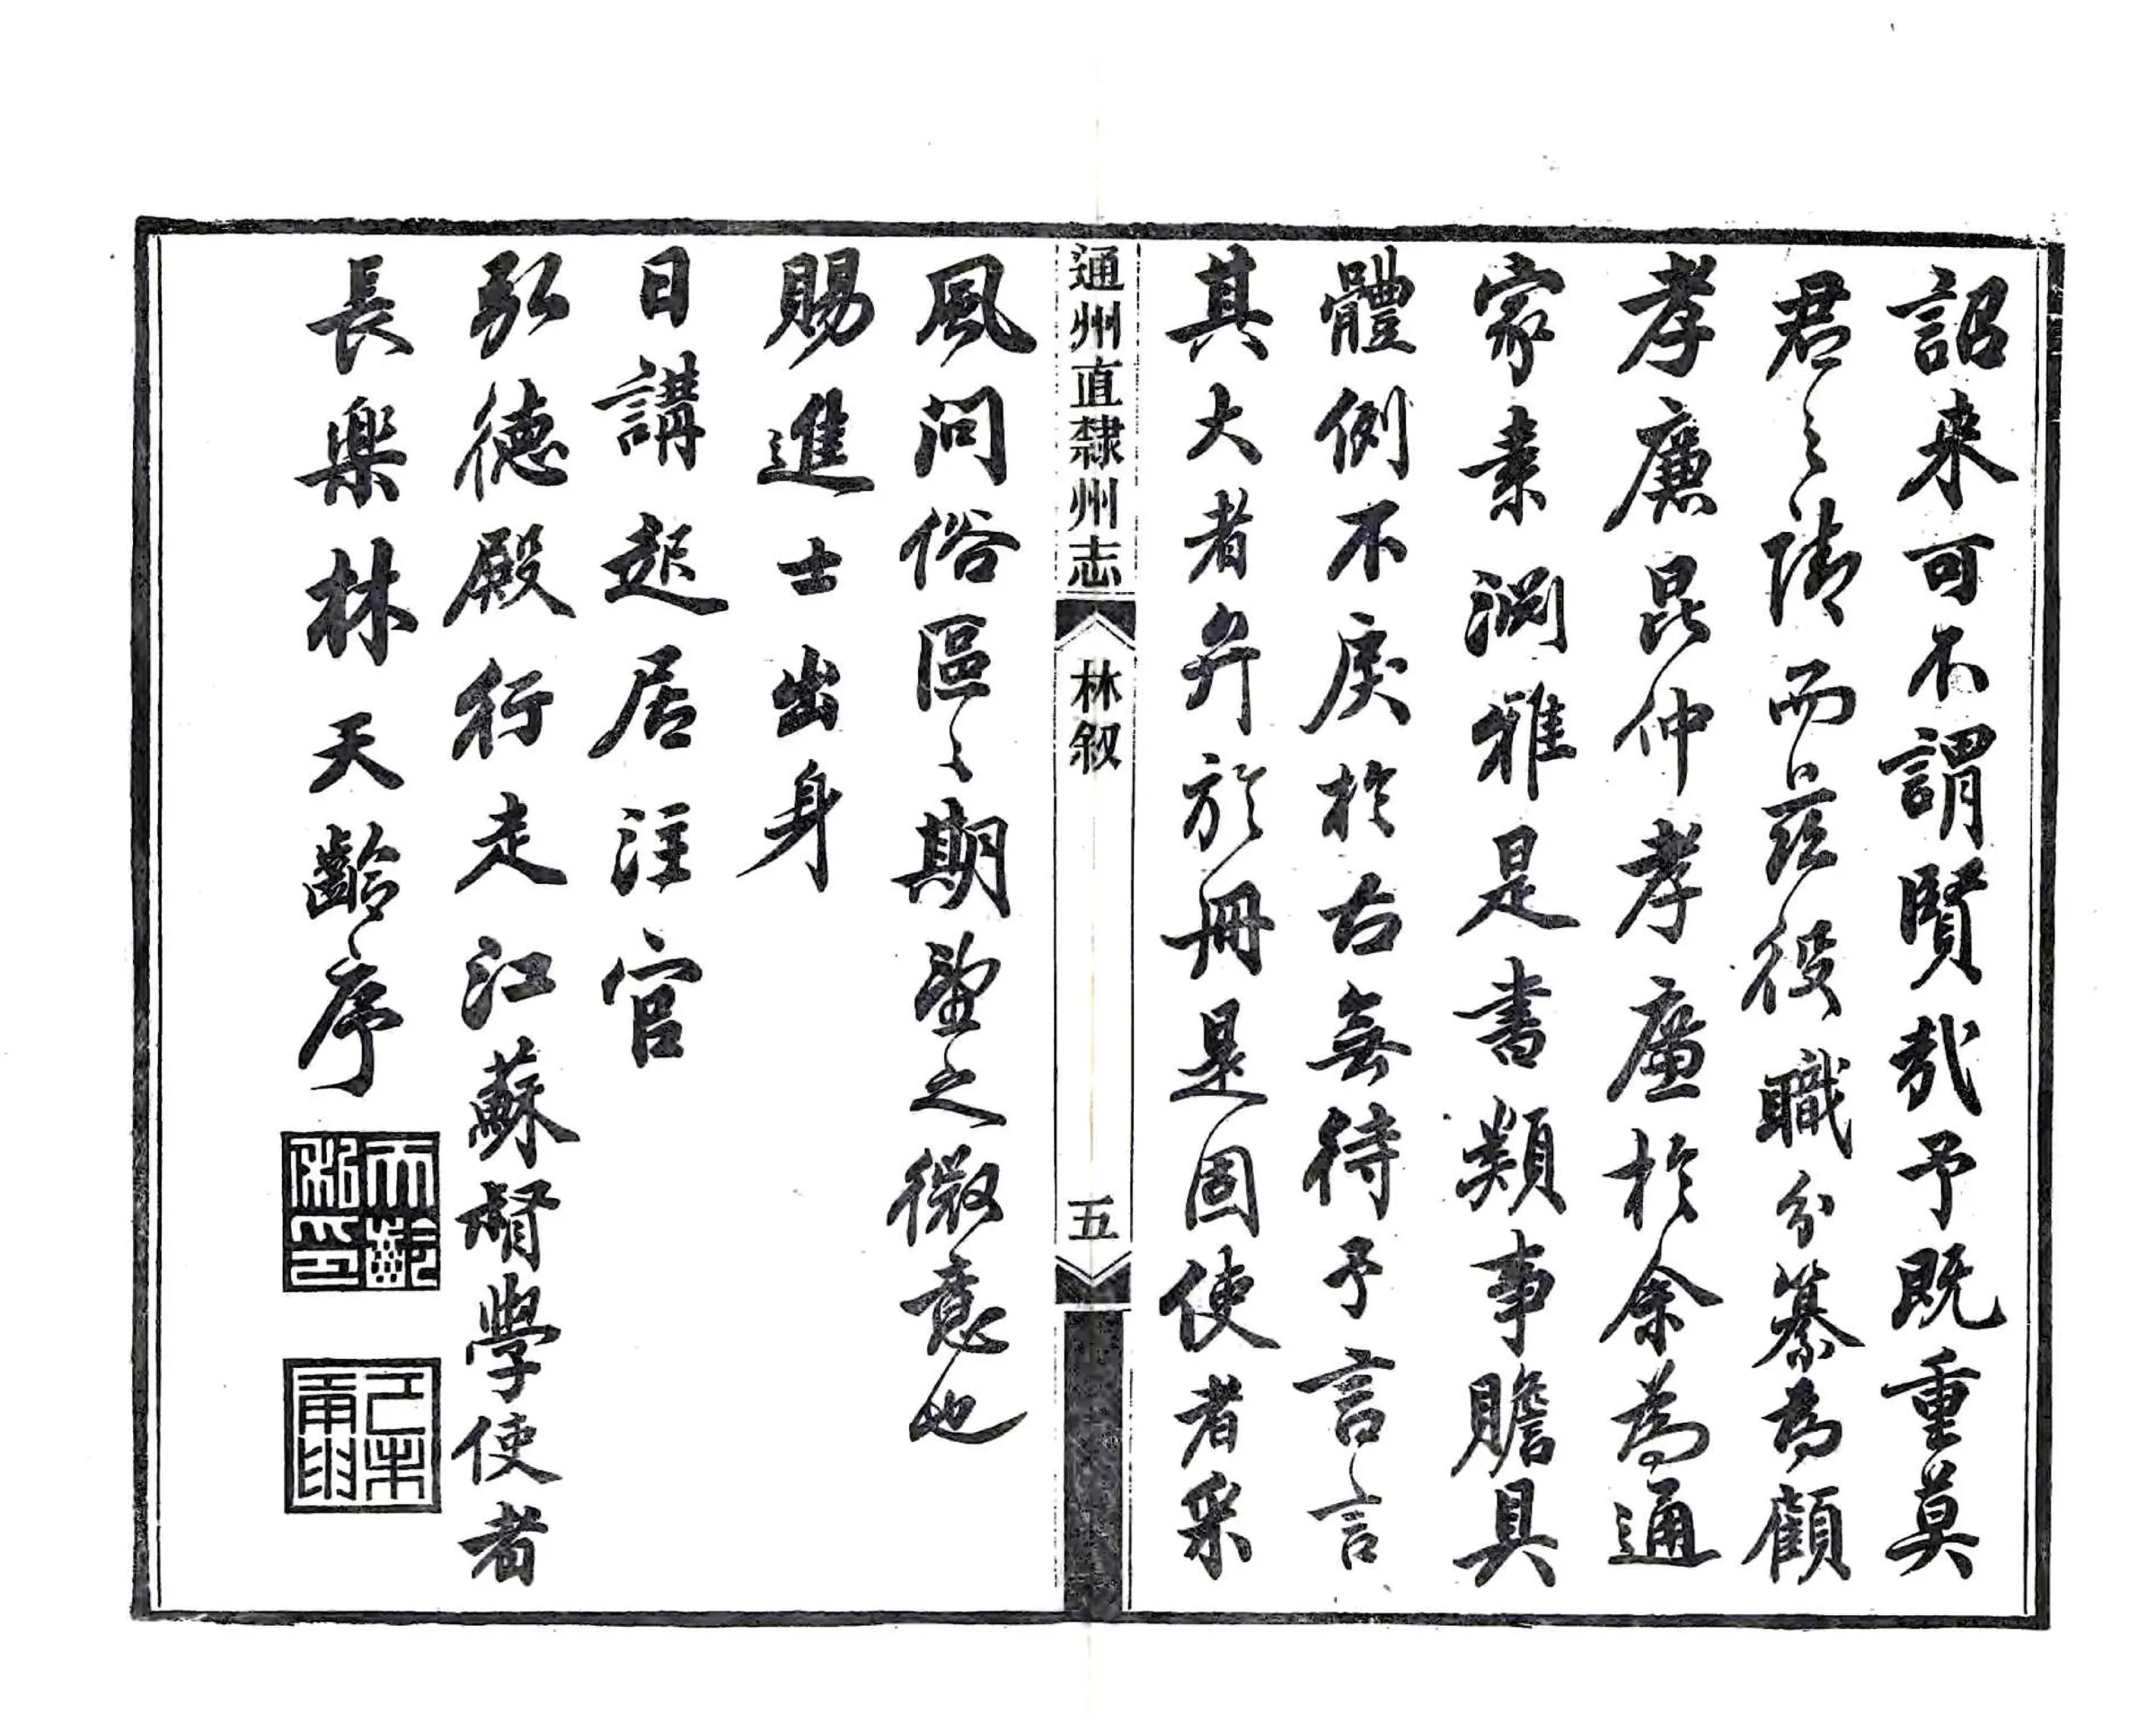 詔来可不謂賢哉予既重莫
君之請而茲役職分纂為顧
孝廉昆仲孝廉於余為通
家素淵雅是書類事贍具
體例不戾於古無待予言言
其大者弁於冊是固使者采
通州直隸州志
林叙
五
風問俗區〻期望之微意也
賜進士出身
日講起居注官
弘德殿行走江蘇督學使者
長樂林天齡序
天齡私印